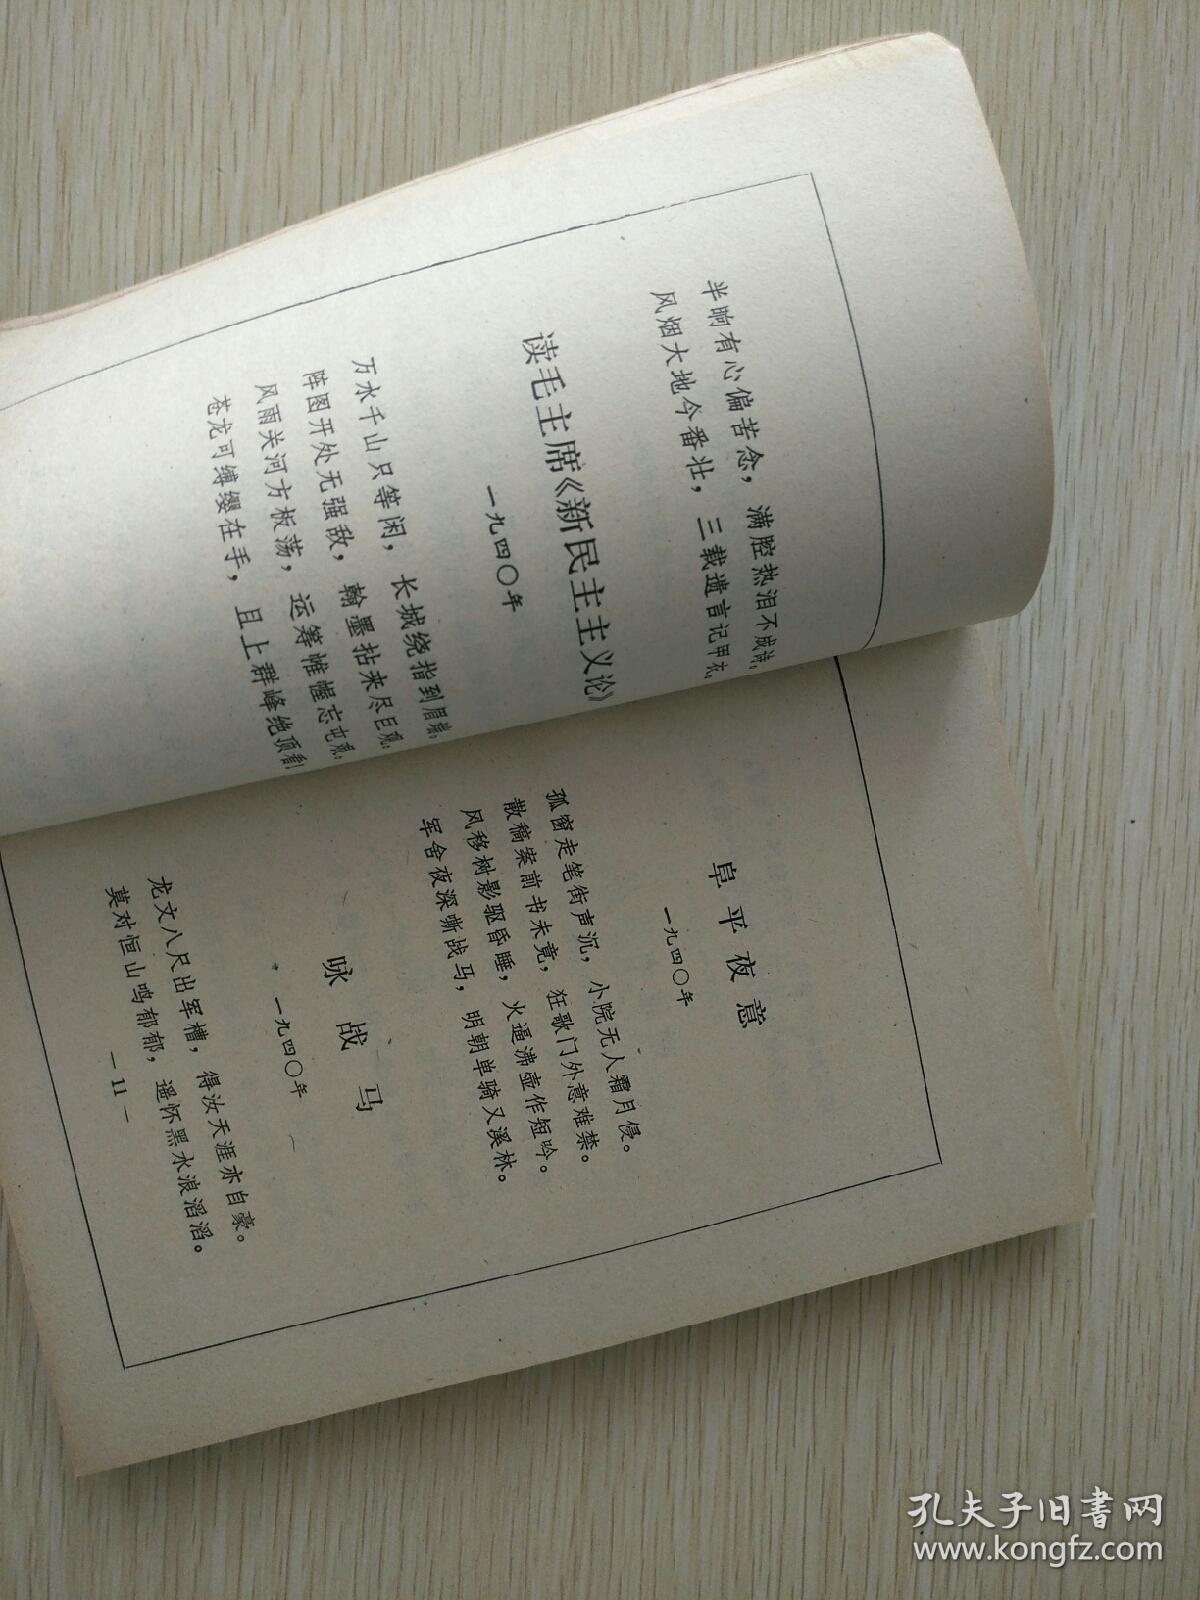 半晌有心偏苦念，满腔热泪不成诗。
风烟大地今番壮，三载遗言记甲衣。
读毛主席《新民主主义论》
一九四〇年
万水千山只等闲，长城绕指到眉端。
阵图开处无强敌，翰墨拈来尽巨观。
风雨关河方板荡，运筹帷幄忘屯艰。
苍龙可缚缨在手，且上群峰绝顶看！
阜平夜意
一九四〇年
孤窗走笔街声沉，小院无人霜月侵。
散稿案前书未竟，狂歌门外意难禁。
风移树影驱昏睡，火逼沸壶作短吟。
军舍夜深嘶战马，明朝单骑又溪林。
咏战马
一九四〇年
龙文八尺出军槽，得汝天涯亦自豪。
莫对恒山鸣郁郁，遥怀黑水浪滔滔。
—11—
孔夫子旧书网
www.kongfz.com